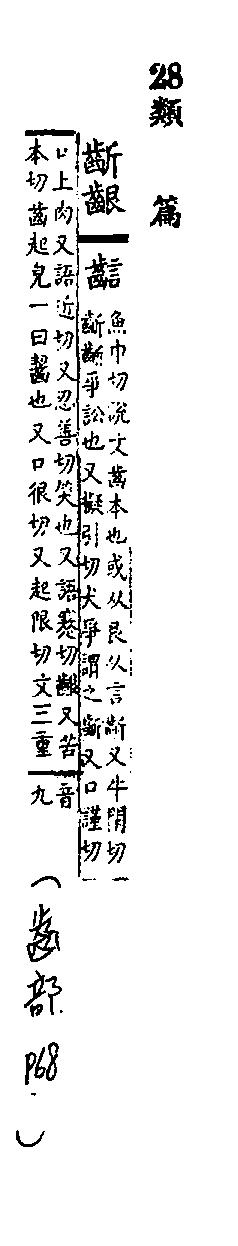 28類篇
齗齦
䶧
魚巾切說文齒本也或从艮从言齗又牛閑切
齗齗爭訟也又擬引切犬爭謂之齗又口謹切
口上肉又語近切又忍善切笑也又語蹇切齦又苦
本切齒起皃一曰齧也又口很切又起限切文三重
音
九
(齒部
P68
)